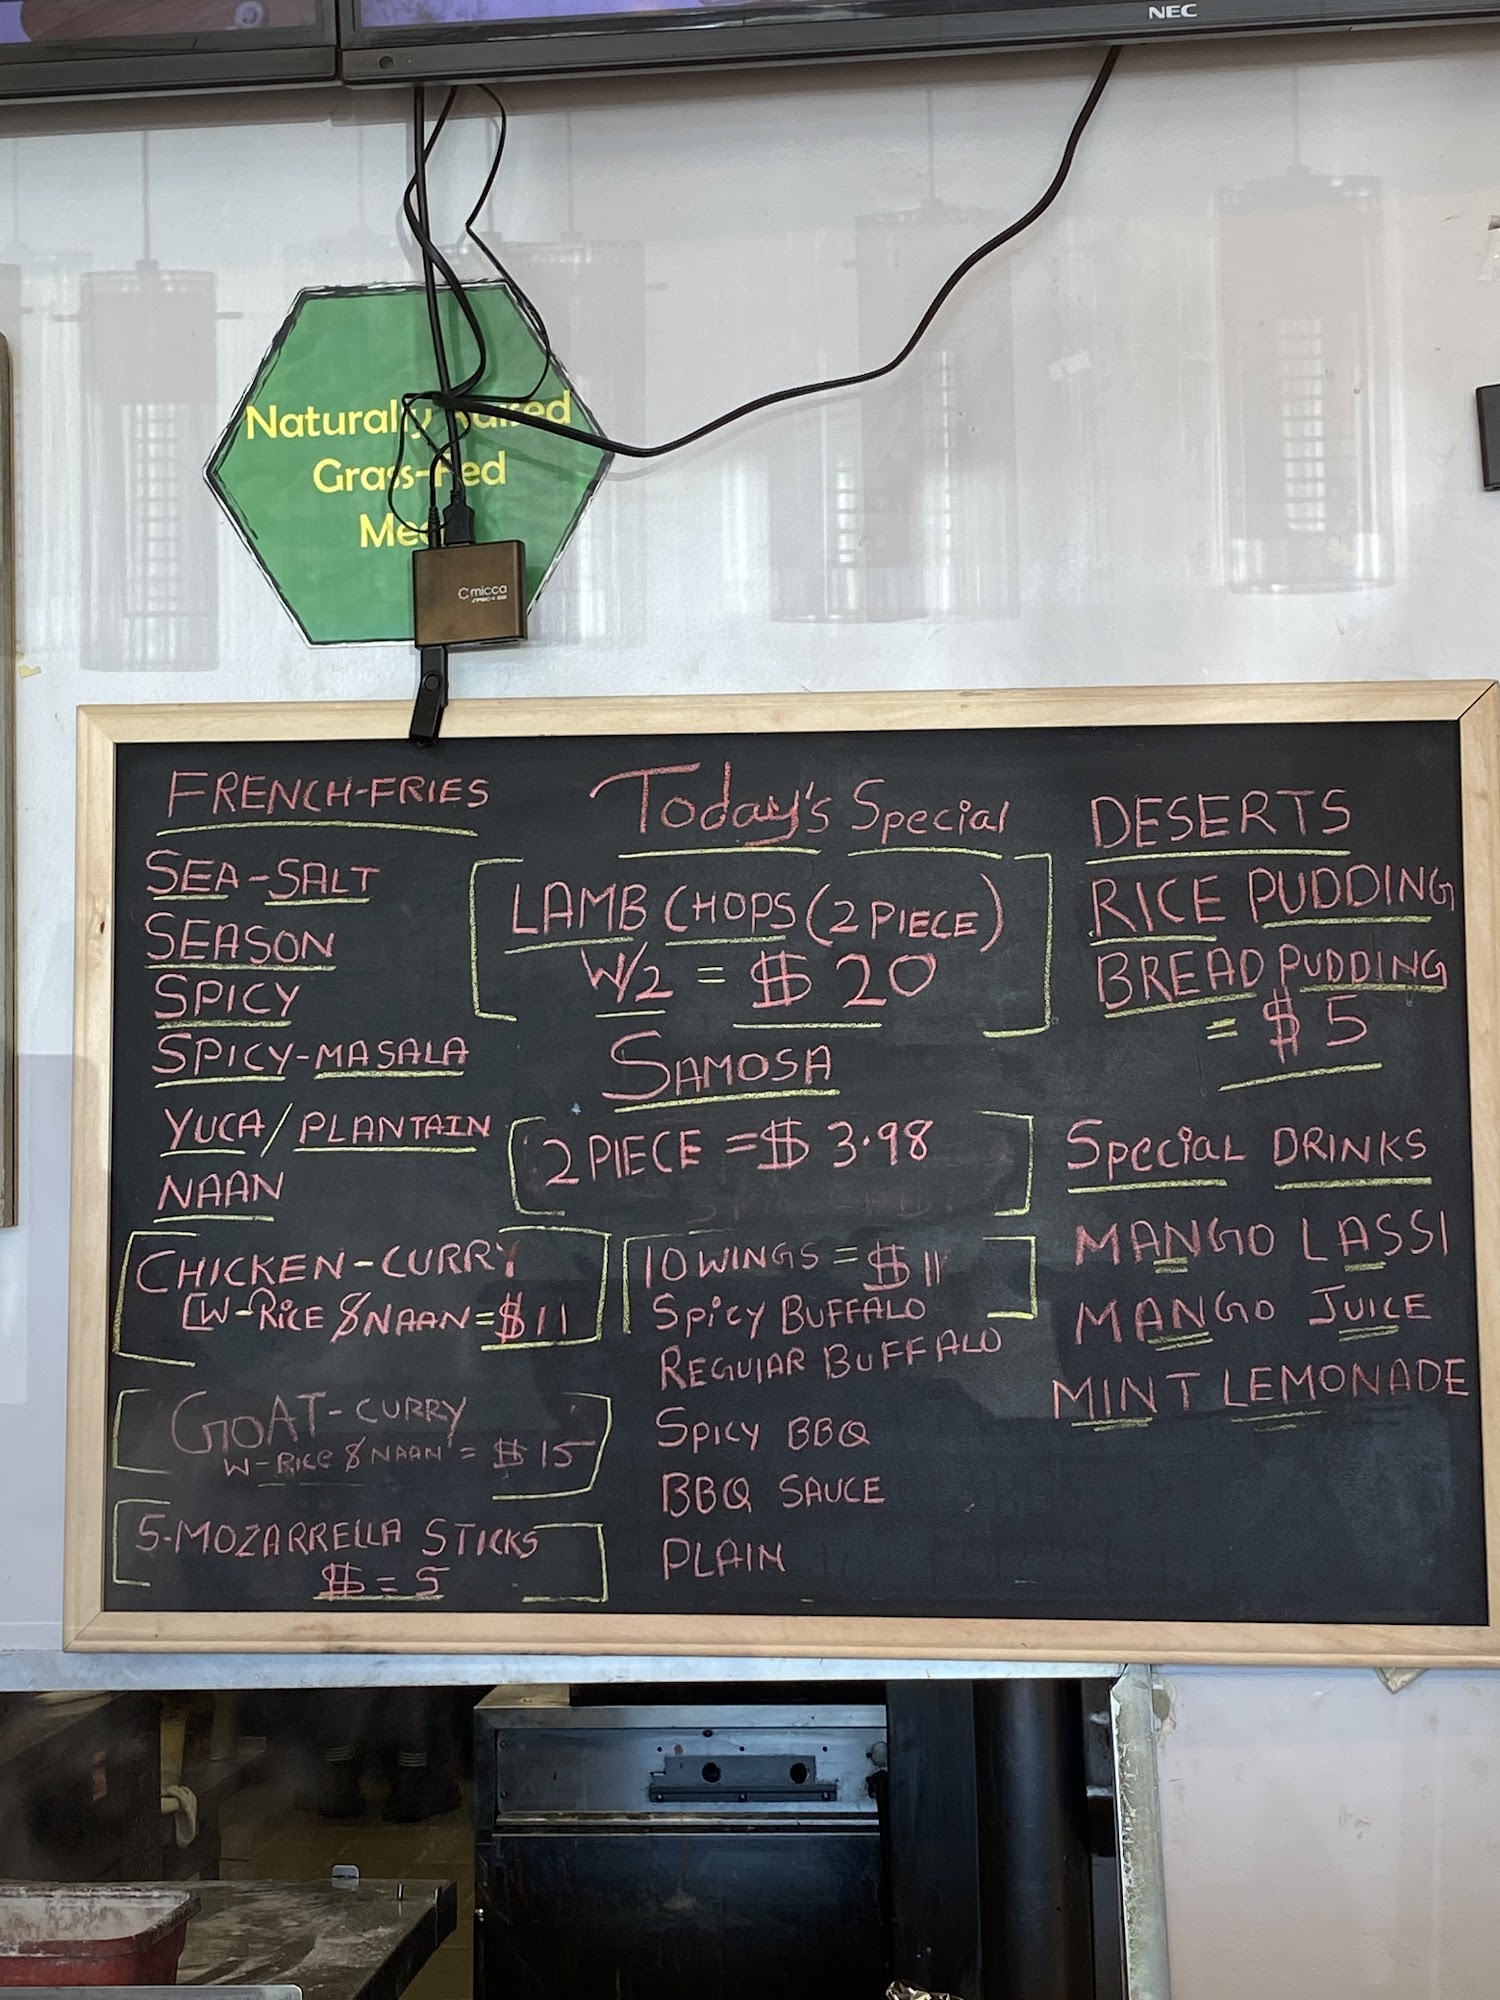 NEC
Naturally
Grass-Fed
micca
FRENCH-FRIES
SEA-SALT
SEASON
SPICY
SPICY-MASALA
YUCA/PLANTAIN
NAAN
CHICKEN-CURRY
[W-RICE & NAAN=$11
GOAT-CURRY
W-RICE & NAAN = $15
5-MOZARRELLA STICKS
$=5
Today's Special
LAMB CHOPS (2 PIECE)
W/2 = $20
SAMOSA
2 PIECE = $3.98
10 WINGS = $11
SPICY BUFFALO
REGULAR BUFFALO
SPICY BBQ
BBQ SAUCE
PLAIN
DESERTS
RICE PUDDING
BREAD PUDDING
= $5
Special DRINKS
MANGO LASSI
MANGO JUICE
MINT LEMONADE